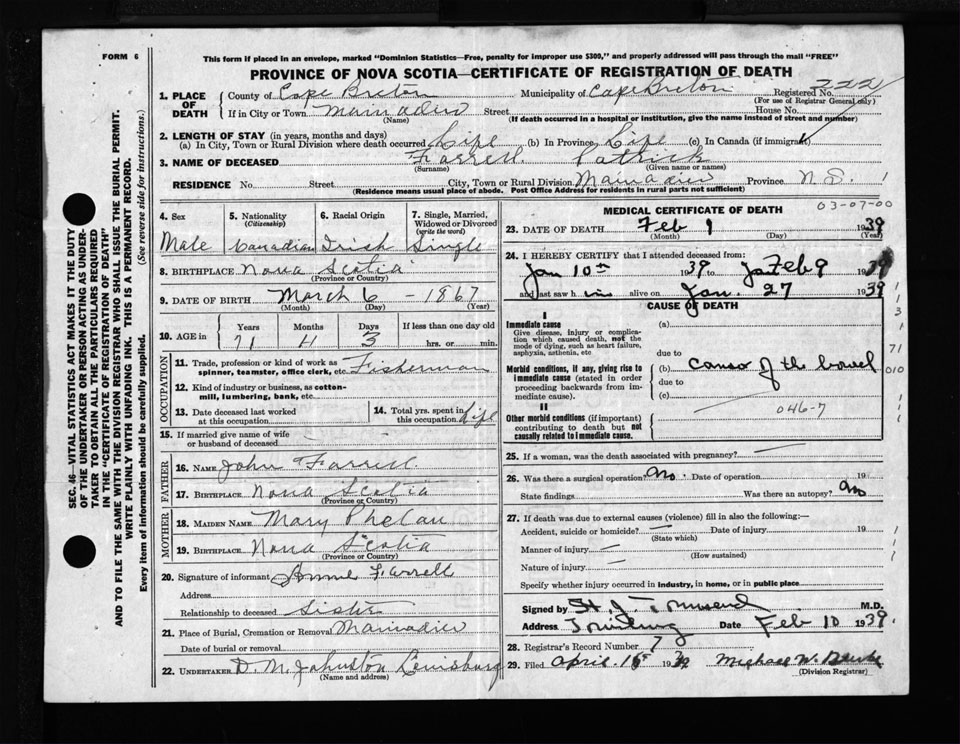 FORM 6
This form if placed in an envelope, marked "Dominion Statistics—Free, penalty for improper use $300," and properly addressed will pass through the mail "FREE"
PROVINCE OF NOVA SCOTIA—CERTIFICATE OF REGISTRATION OF DEATH
1. PLACE OF DEATH
County of Cape Breton Municipality of Cape Breton Registered No.
(For use of Registrar General only)
If in City or Town Mainadieu Street House No.
(Name) (If death occurred in a hospital or institution, give the name instead of street and number)
2. LENGTH OF STAY (in years, months and days)
(a) In City, Town or Rural Division where death occurred Life (b) In Province Life (c) In Canada (if immigrant)
3. NAME OF DECEASED Farrell Patrick
(Surname) (Given name or names)
RESIDENCE No. Street City, Town or Rural Division Mainadieu Province N S.
(Residence means usual place of abode. Post Office Address for residents in rural parts not sufficient)
4. Sex 5. Nationality 6. Racial Origin 7. Single, Married, Widowed or Divorced
(Citizenship) (write the word)
Male Canadian Irish Single
8. BIRTHPLACE Nova Scotia
(Province or Country)
9. DATE OF BIRTH March 6 - 1867
(Month) (Day) (Year)
10. AGE in Years Months Days If less than one day old
71 3 hrs. or min.
OCCUPATION
11. Trade, profession or kind of work as spinner, teamster, office clerk, etc. Fisherman
12. Kind of industry or business, as cotton-mill, lumbering, bank, etc.
13. Date deceased last worked at this occupation
14. Total yrs. spent in this occupation life
15. If married give name of wife or husband of deceased
FATHER
16. NAME John Farrell
17. BIRTHPLACE Nova Scotia
(Province or Country)
MOTHER
18. MAIDEN NAME Mary Phelan
19. BIRTHPLACE Nova Scotia
(Province or Country)
20. Signature of informant Annie Farrell
Address
Relationship to deceased Sister
21. Place of Burial, Cremation or Removal Mainadieu
Date of burial or removal
22. UNDERTAKER D. M. Johnston Louisburg
(Name and address)
03-07-00
MEDICAL CERTIFICATE OF DEATH
23. DATE OF DEATH Feb 9 1939
(Month) (Day) (Year)
24. I HEREBY CERTIFY that I attended deceased from:
Jan 10th 1939 to Feb 9 1939
and last saw him alive on Jan. 27 1939
CAUSE OF DEATH
I
Immediate cause
Give disease, injury or complication which caused death, not the mode of dying, such as heart failure, asphyxia, asthenia, etc
(a)
due to
Morbid conditions, if any, giving rise to immediate cause (stated in order proceeding backwards from immediate cause).
(b) cancer of the bowel
due to
(c)
II
Other morbid conditions (if important) contributing to death but not causally related to immediate cause.
046-7
71
010
25. If a woman, was the death associated with pregnancy?
26. Was there a surgical operation? no. Date of operation 19
State findings Was there an autopsy? no
27. If death was due to external causes (violence) fill in also the following:—
Accident, suicide or homicide? Date of injury 19
(State which)
Manner of injury
(How sustained)
Nature of injury
Specify whether injury occurred in industry, in home, or in public place
Signed by H. J. Townsend M.D.
Address Date Feb 10 1939.
28. Registrar's Record Number 7
29. Filed April 15 1939 Michael W.
(Division Registrar)
SEC. 46—VITAL STATISTICS ACT MAKES IT THE DUTY
OF THE UNDERTAKER OR PERSON ACTING AS UNDER-
TAKER TO OBTAIN ALL THE PARTICULARS REQUIRED
IN THE "CERTIFICATE OF REGISTRATION OF DEATH"
AND TO FILE THE SAME WITH THE DIVISION REGISTRAR WHO SHALL ISSUE THE BURIAL PERMIT.
WRITE PLAINLY WITH UNFADING INK. THIS IS A PERMANENT RECORD.
Every item of information should be carefully supplied. (See reverse side for instructions.)